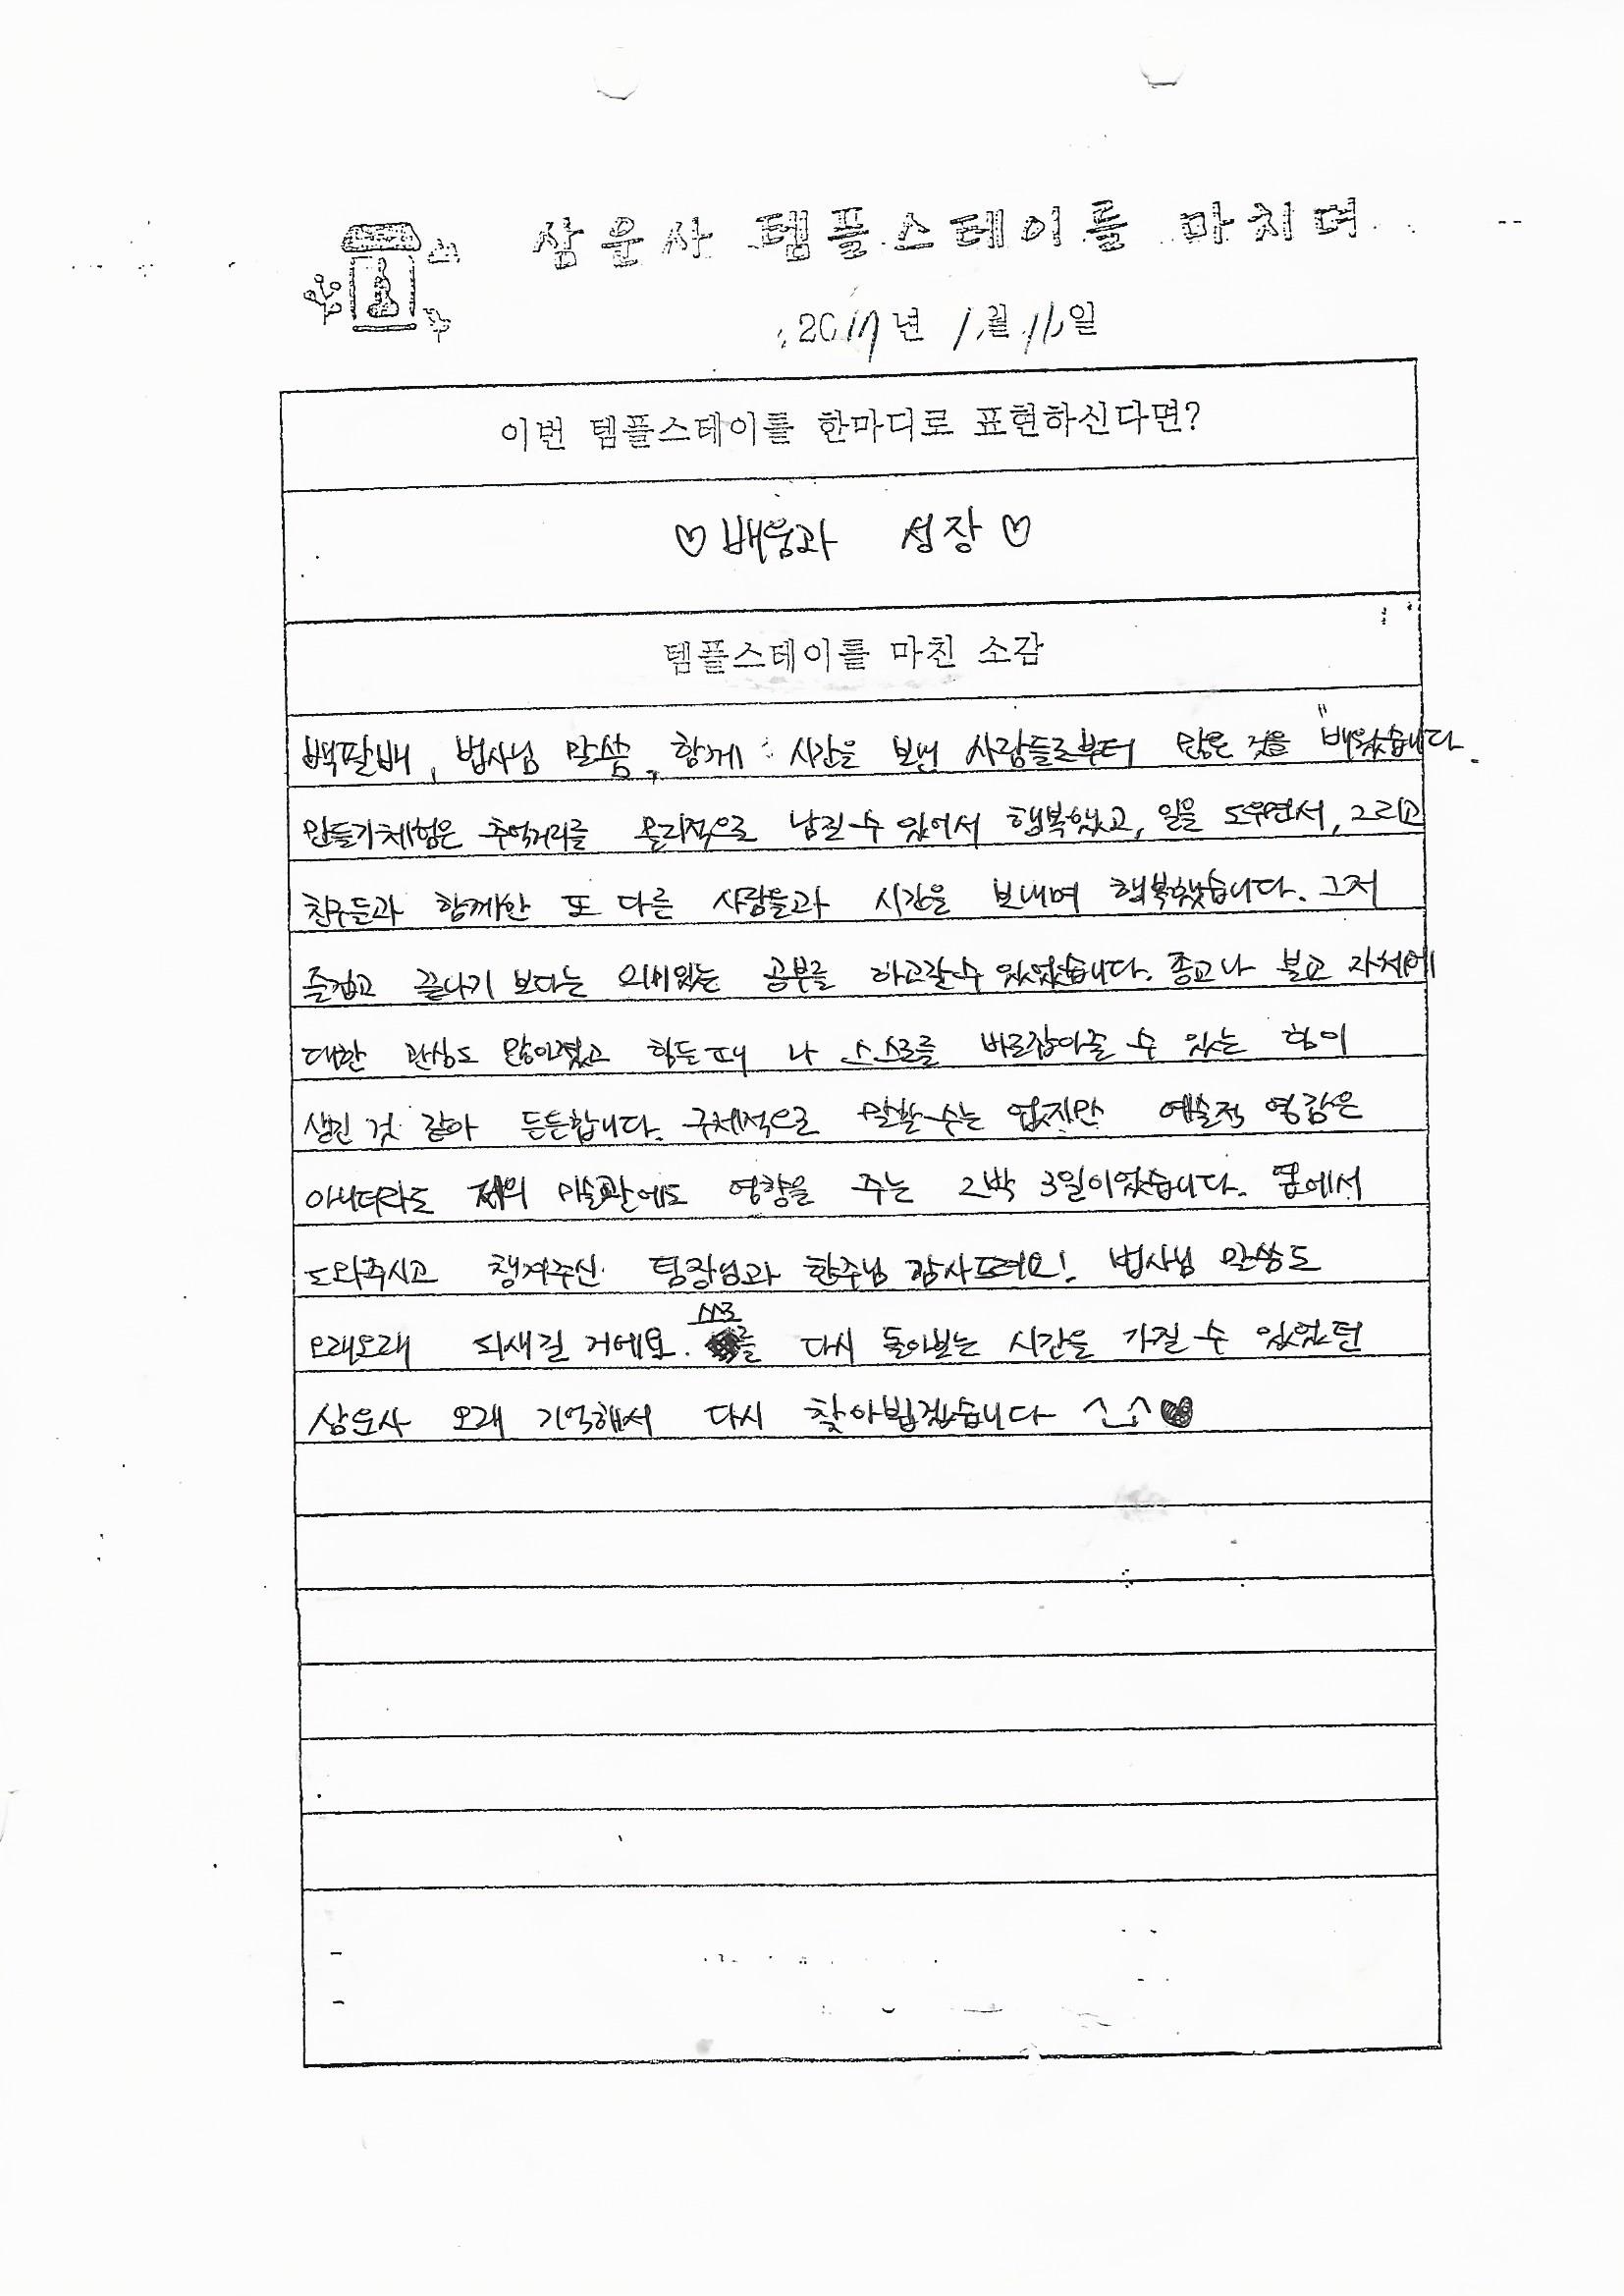 삼운사 템플스테이를 마치며
2017년 1월 11일
이번 템플스테이를 한마디로 표현하신다면?
♡ 배움과 성장 ♡
템플스테이를 마친 소감
백팔배, 법사님 말씀, 함께 시간을 보낸 사람들로부터 많은 것을 배웠습니다.
만들기체험은 추억거리를 물리적으로 남길 수 있어서 행복했고, 일을 도우면서, 그리고
친구들과 함께한 또 다른 사람들과 시간을 보내며 행복했습니다. 그저
즐겁고 끝나기 보다는 의미있는 공부를 하고갈 수 있었습니다. 종교나 불교 자체에
대한 관심도 많아졌고 힘든 때 나 스스로를 바로잡아줄 수 있는 힘이
생긴 것 같아 든든합니다. 구체적으로 말할 수는 없지만 예술적 영감은
아니더라도 저의 미술관에도 영향을 주는 2박 3일이었습니다. 옆에서
도와주시고 챙겨주신 팀장님과 한주님 감사드려요! 법사님 말씀도
오래오래 되새길 거에요. 스스로를 다시 돌아보는 시간을 가질 수 있었던
삼운사 오래 기억해서 다시 찾아뵙겠습니다 ^_^♥